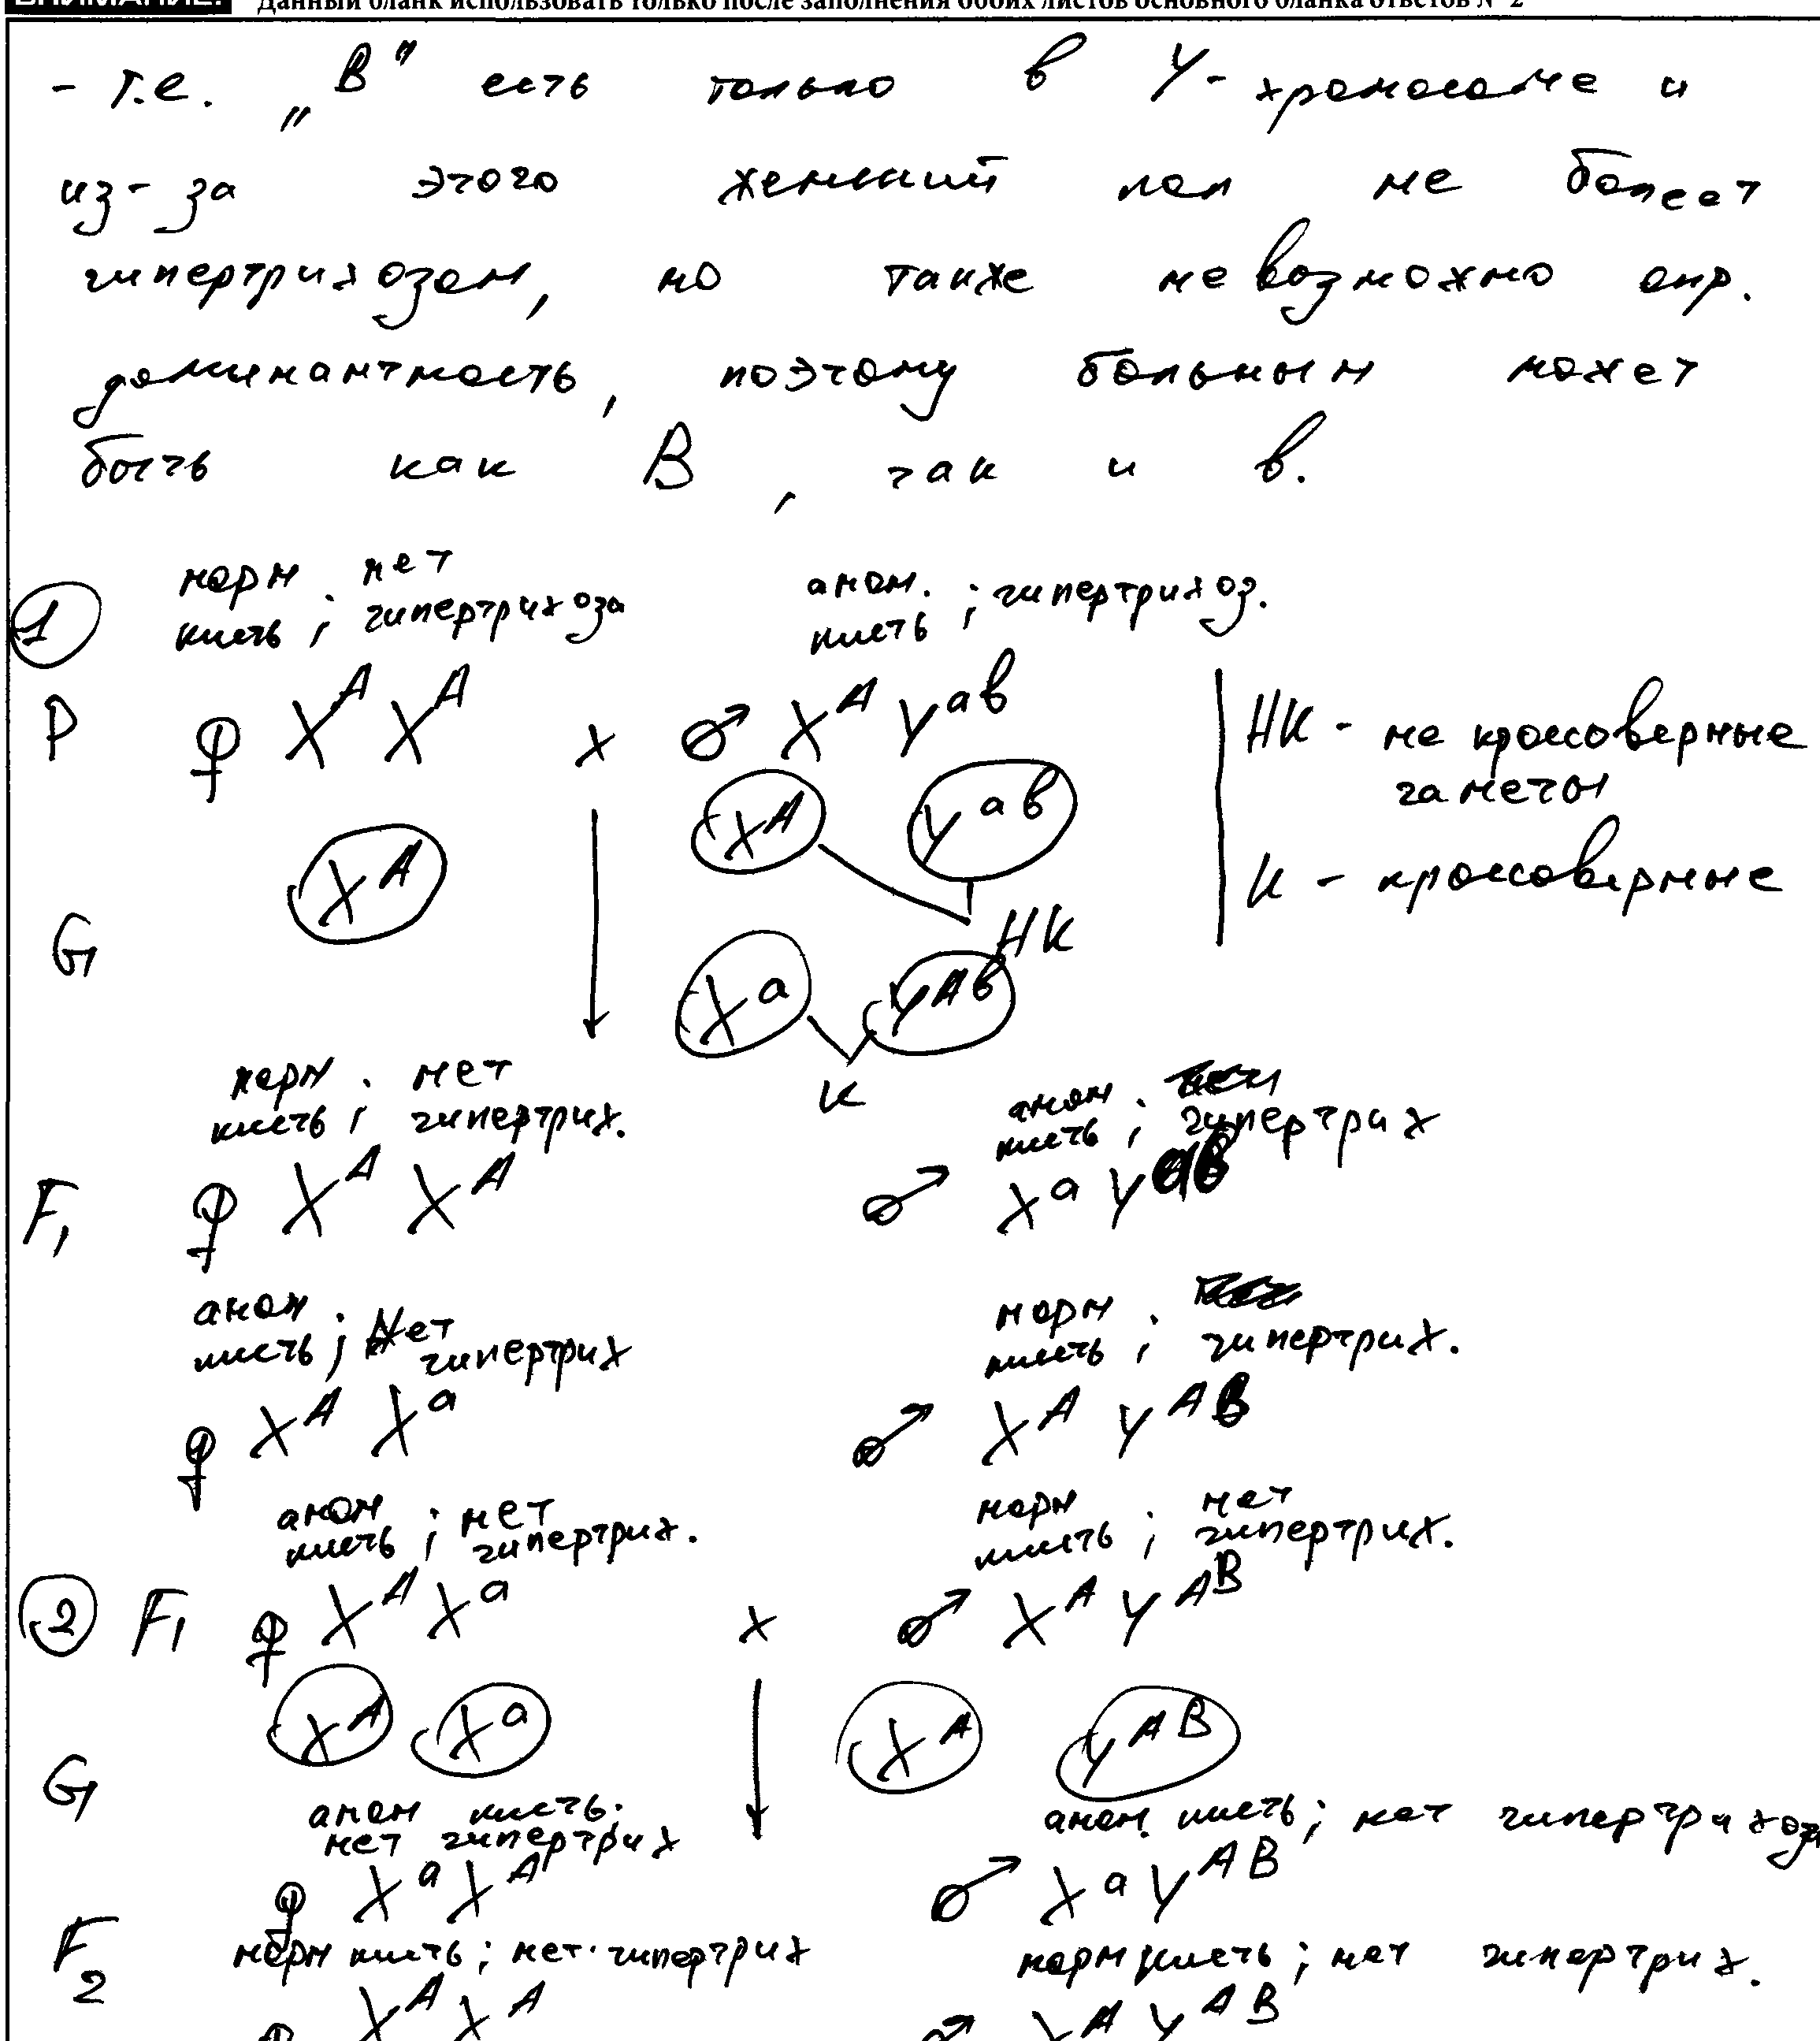 ВНИМАНИЕ! Данный бланк использовать только после заполнения обоих листов основного бланка ответов № 2
- т.е. „B" есть только в Y-хромосоме и
из-за этого женский пол не болеет
гипертрихозом, но также невозможно опр.
доминантность, поэтому больным может
быть как B, так и b.
норм кисть ; нет гипертрихоза аном. кисть ; гипертрихоз.
1
P ♀ X^A X^A x ♂ X^A Y^ab
НК - не кроссоверные гаметы
К - кроссоверные
G X^A X^A Y^ab НК
X^a Y^Ab К
норм кисть ; нет гипертрих. аном кисть ; гипертрих
F1 ♀ X^A X^A ♂ X^a Y^ab
аном кисть ; нет гипертрих норм кисть ; гипертрих.
♀ X^A X^a ♂ X^A Y^Ab
аном кисть ; нет гипертрих. норм кисть ; нет гипертрих.
2 F1 ♀ X^A X^a x ♂ X^A Y^AB
G X^A X^a X^A Y^AB
аном кисть; нет гипертрих аном. кисть ; нет гипертрихоза
♀ X^a X^A ♂ X^a Y^AB
F2 норм кисть ; нет гипертрих норм кисть ; нет гипертрих.
♀ X^A X^A ♂ X^A Y^AB